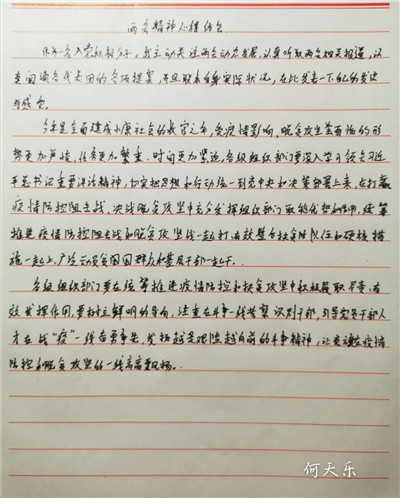 两会精神心得体会
作为一名入党积极分子，我主动关注两会动态发展，认真听取两会相关报道，认
真阅读各代表团的各项提案，并且联系自身实际状况，在此发表一下我的看法
与感会。
今年是全面建成小康社会的收官之年，受疫情影响，脱贫攻坚面临的形
势更加严峻、任务更加繁重、时间更加紧迫，各级组织部门要深入学习领会习近
平总书记重要讲话精神，切实把思想和行动统一到党中央和决策部署上来，在打赢
疫情防控阻击战、决战脱贫攻坚中充分发挥组织部门职能优势和作用，统筹
推进疫情防控阻击战和脱贫攻坚战一起打，有效整合扶贫队伍和硬核措
施一起上，广泛动员贫困群众和基层干部一起干。
各级组织部门要在统筹推进疫情防控和扶贫攻坚中积极履职尽责，有
效发挥作用，要树立鲜明的导向，注重在斗争一线考察识别干部，引导党员干部人
才在战“疫”一线奋勇争先，发扬越是艰险越向前的斗争精神，让党旗在疫情
防控和脱贫攻坚的一线高高飘扬。
何天乐